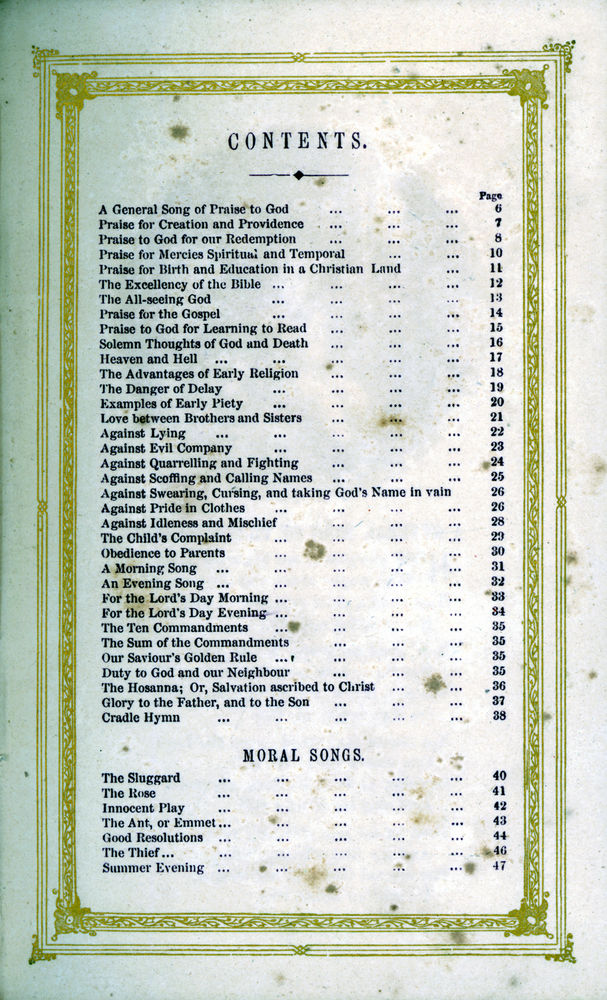 CONTENTS.
Page
A General Song of Praise to God ... ... ... 6
Praise for Creation and Providence ... ... ... 7
Praise to God for our Redemption ... ... ... 8
Praise for Mercies Spiritual and Temporal ... ... 10
Praise for Birth and Education in a Christian Land ... 11
The Excellency of the Bible ... ... ... ... 12
The All-seeing God ... ... ... ... 13
Praise for the Gospel ... ... ... ... 14
Praise to God for Learning to Read ... ... ... 15
Solemn Thoughts of God and Death ... ... ... 16
Heaven and Hell ... ... ... ... ... 17
The Advantages of Early Religion ... ... ... 18
The Danger of Delay ... ... ... ... 19
Examples of Early Piety ... ... ... ... 20
Love between Brothers and Sisters ... ... ... 21
Against Lying ... ... ... ... ... 22
Against Evil Company ... ... ... ... 23
Against Quarrelling and Fighting ... ... ... 24
Against Scoffing and Calling Names ... ... ... 25
Against Swearing, Cursing, and taking God's Name in vain 26
Against Pride in Clothes ... ... ... ... 26
Against Idleness and Mischief ... ... ... 28
The Child's Complaint ... ... ... ... 29
Obedience to Parents ... ... ... ... 30
A Morning Song ... ... ... ... ... 31
An Evening Song ... ... ... ... ... 32
For the Lord's Day Morning ... ... ... ... 33
For the Lord's Day Evening ... ... ... ... 34
The Ten Commandments ... ... ... ... 35
The Sum of the Commandments ... ... ... 35
Our Saviour's Golden Rule ... ... ... ... 35
Duty to God and our Neighbour ... ... ... 35
The Hosanna; Or, Salvation ascribed to Christ ... ... 36
Glory to the Father, and to the Son ... ... ... 37
Cradle Hymn ... ... ... ... ... 38
MORAL SONGS.
The Sluggard ... ... ... ... ... 40
The Rose ... ... ... ... ... 41
Innocent Play ... ... ... ... ... 42
The Ant, or Emmet ... ... ... ... ... 43
Good Resolutions ... ... ... ... ... 44
The Thief ... ... ... ... ... ... 46
Summer Evening ... ... ... ... ... 47